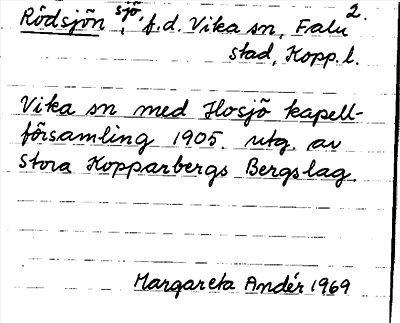 Rödsjön, sjö, f.d. Vika sn, Falu 2.
stad, Kopp. l.
Vika sn med Hosjö kapell-
församling 1905. utg. av
Stora Kopparbergs Bergslag.
Margareta Andér 1969